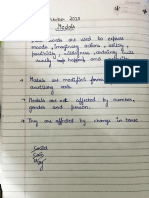 2023
Modals
words are used to express
moods, imaginary actions, ability,
possibility, willingness, certainty
surely happens, and
→ Modals are modified forms
auxiliary verbs
→ Modals are not affected by number,
gender and person.
→ They are affected by change in tense
Could